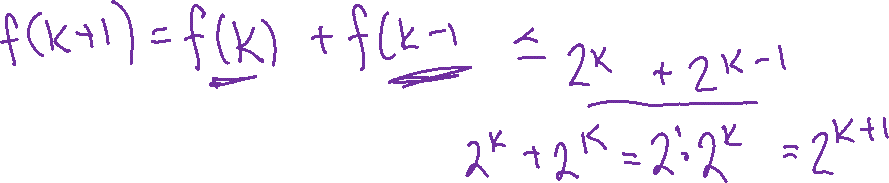 f(k+1) = f(k) + f(k-1 ≤ 2^k + 2^{k-1}
2^k + 2^k = 2^1 · 2^k = 2^{k+1}